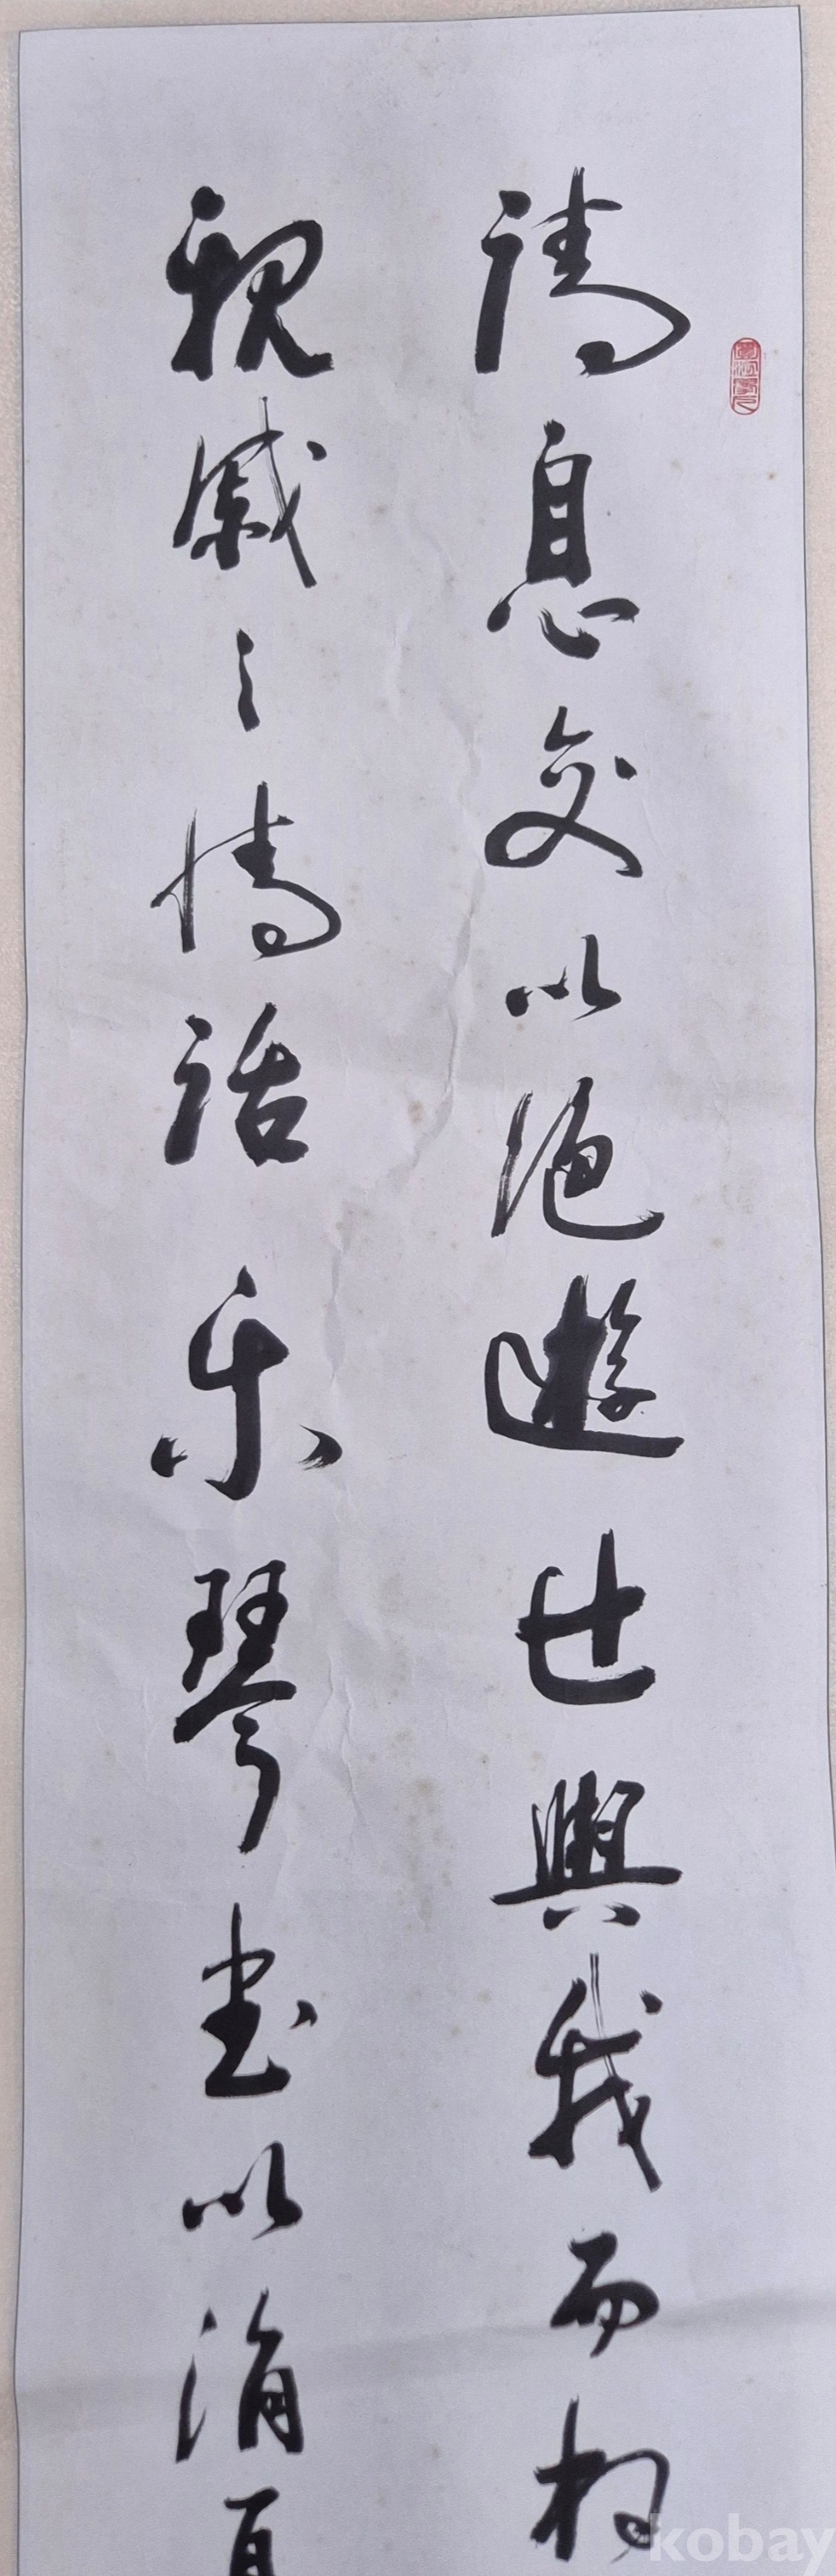 請息交以絶遊世與我而相
親戚之情話樂琴書以消憂
kobay